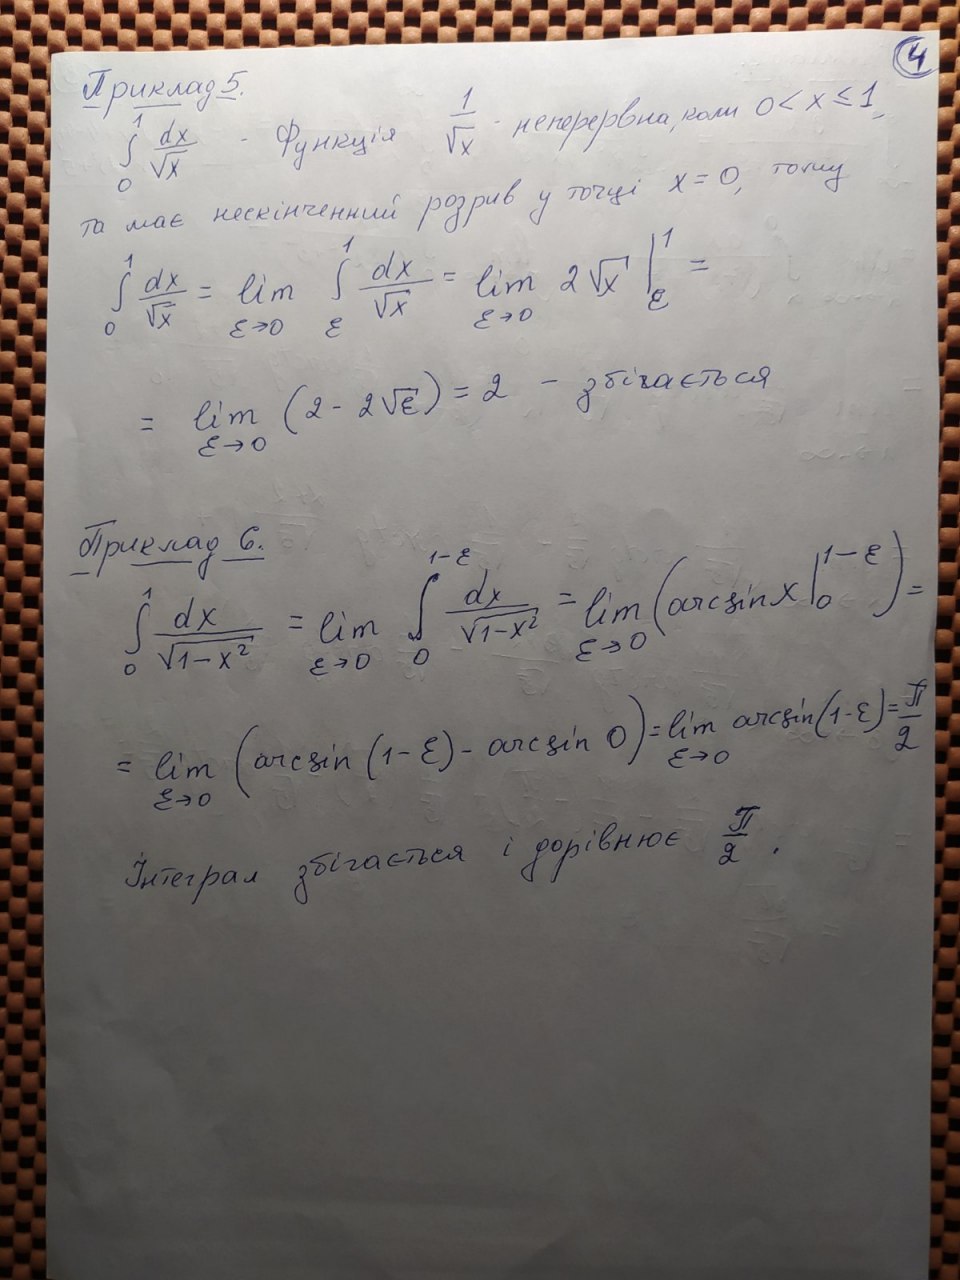 4
Приклад 5.
∫₀¹ dx/√x - Функція 1/√x - неперервна, коли 0 < x ≤ 1,
та має нескінченний розрив у точці x = 0, тому
∫₀¹ dx/√x = lim_{ε→0} ∫_ε^1 dx/√x = lim_{ε→0} 2√x |_ε^1 =
= lim_{ε→0} (2 - 2√ε) = 2 - збігається
Приклад 6.
∫₀¹ dx/√(1-x²) = lim_{ε→0} ∫_0^{1-ε} dx/√(1-x²) = lim_{ε→0} (arcsin x |_0^{1-ε}) =
= lim_{ε→0} (arcsin (1-ε) - arcsin 0) = lim_{ε→0} arcsin(1-ε) = π/2
Інтеграл збігається і дорівнює π/2.